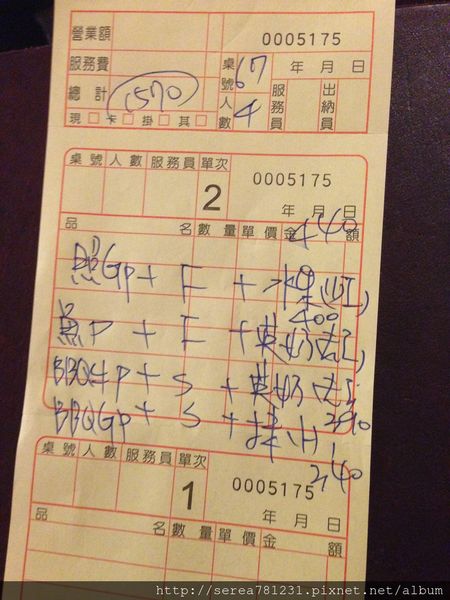 營業額 0005175
服務費 桌號 67 年 月 日
總計 1570 人數 4 服務員 出納員
現□ 卡□ 掛□ 其□
桌號 人數 服務員 單次
2 0005175
年 月 日
品 名 數量 單價 金額
440
照GP + F +
400
魚P + F + 英奶
BBQ牛P + S + 英奶
390
BBQGP + S +
340
桌號 人數 服務員 單次
1 0005175
年 月 日
品 名 數量 單價 金額
http://serea781231.pixnet.net/album